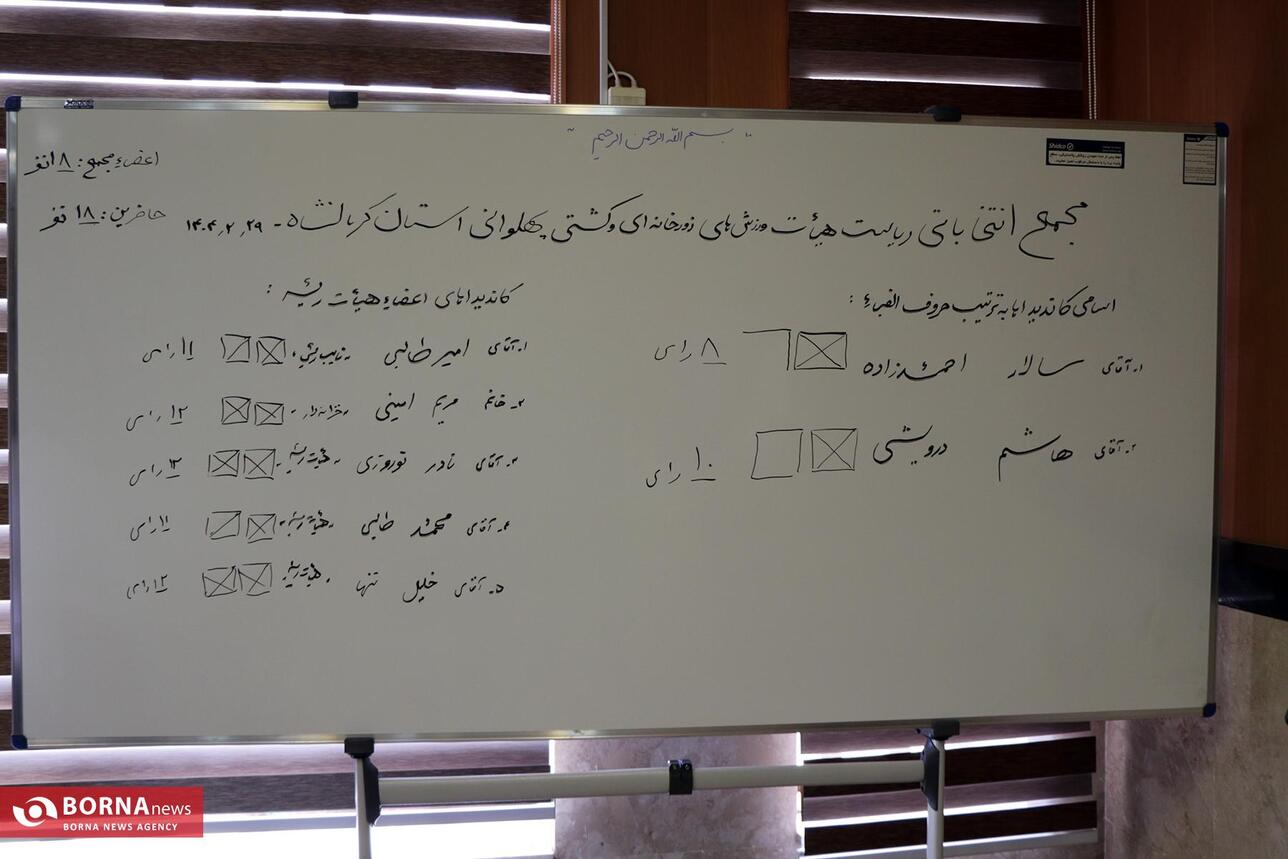 " بسم الله الرحمن الرحیم "
اعضاء مجمع: ۱۸ نفر
حاضرین: ۱۸ نفر
مجمع انتخاباتی ریاست هیأت ورزش‌های زورخانه‌ای و کشتی پهلوانی استان کرمانشاه - ۱۴۰۴٫۲٫۲۹
اسامی کاندیداها به ترتیب حروف الفباء:
۱- آقای سالار احمدزاده ۸ رای
۲- آقای هاشم درویشی ۱۰ رای
کاندیداهای اعضاء هیأت رئیسه:
۱- آقای امیر طالبی - نایب رئیس - ۱۱ رای
۲- خانم مریم امینی - خزانه‌دار - ۱۲ رای
۳- آقای نادر نوروزی - هیأت رئیسه - رای
۴- آقای محمد طالبی - هیأت رئیسه - ۱۱ رای
۵- آقای خلیل تنها - هیأت رئیسه - ۱۲ رای
Shidco
BORNA news
BORNA NEWS AGENCY